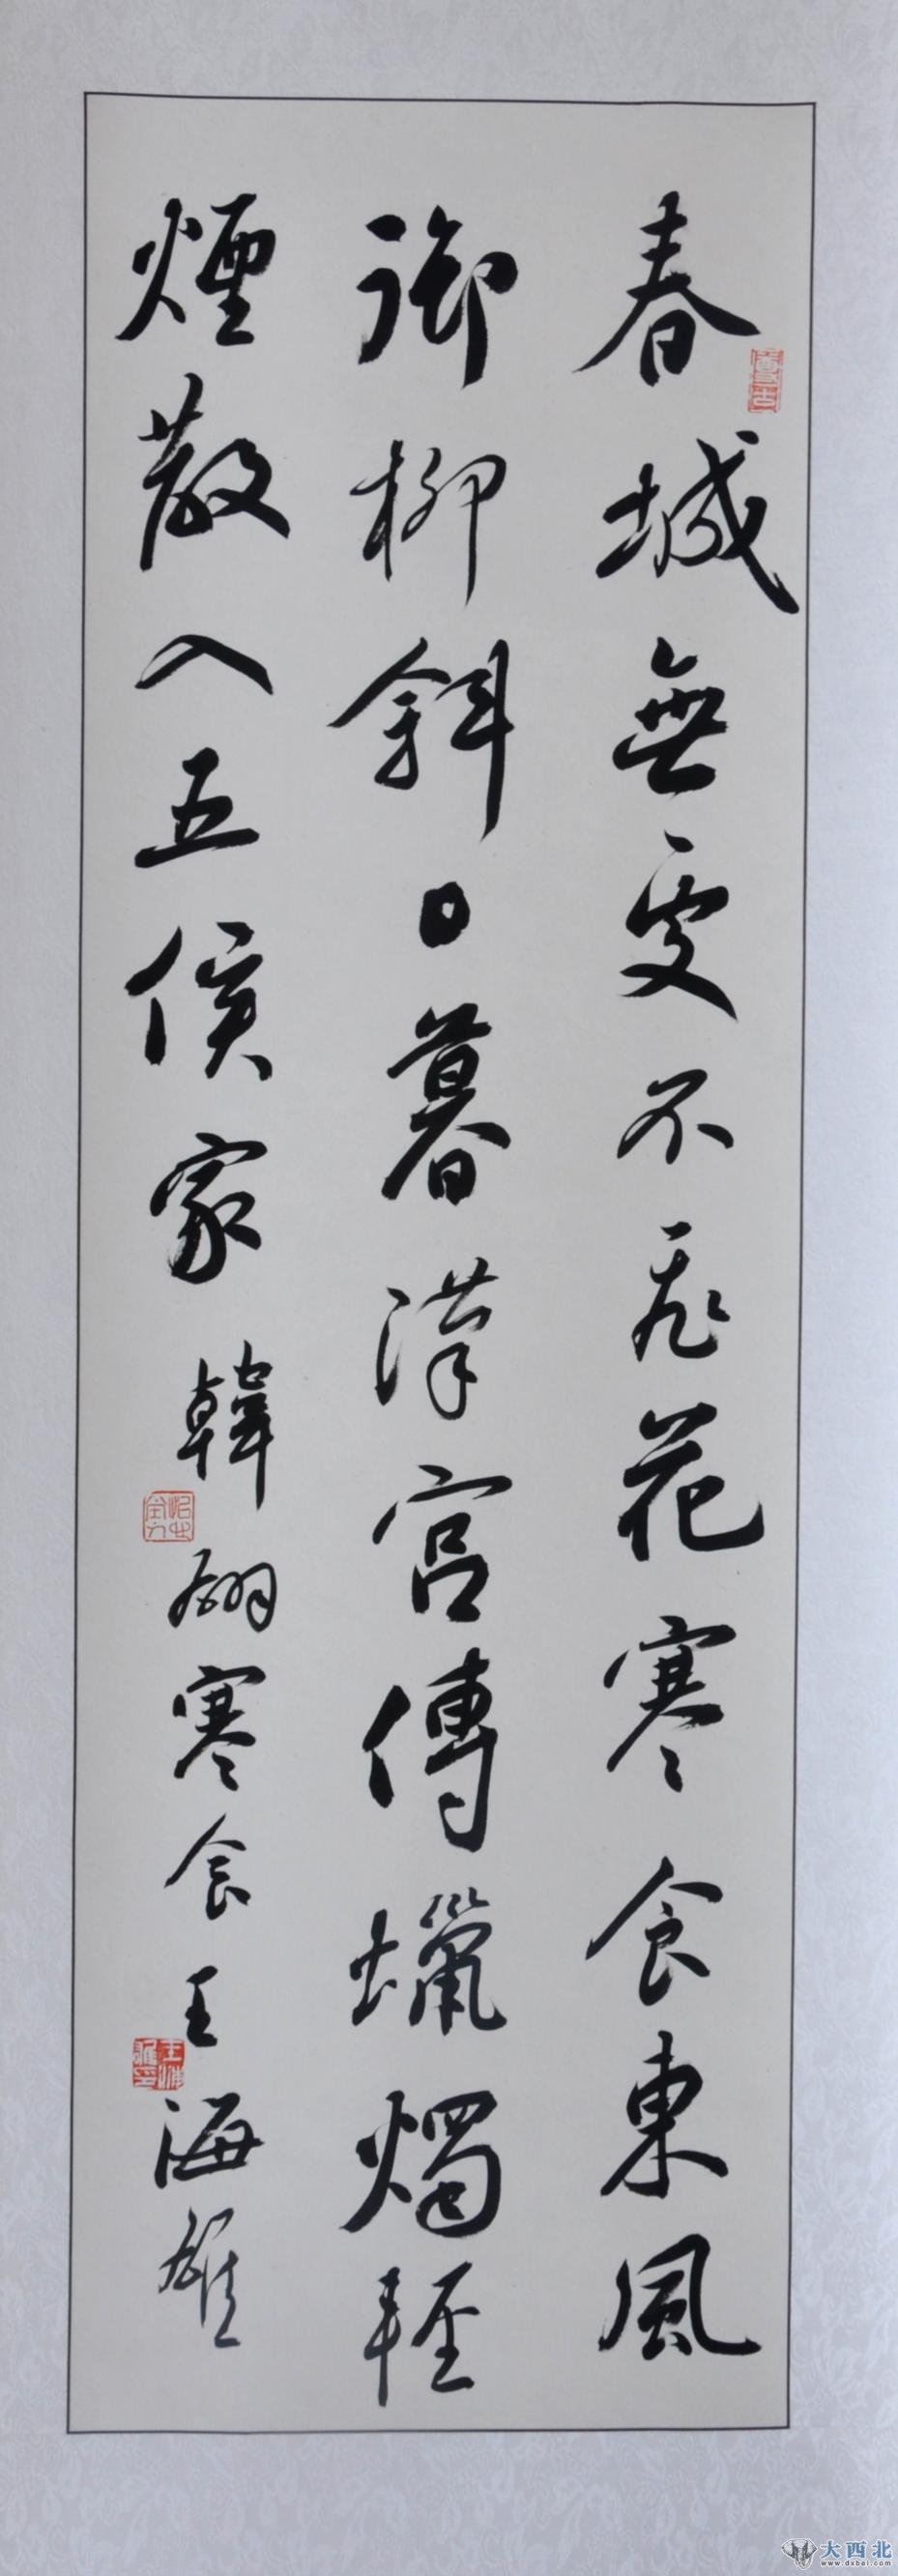 春城無處不飛花寒食東風
御柳斜日暮漢宮傳蠟燭輕
煙散入五侯家 韓翃寒食 王海雄
大西北
www.dxbei.com